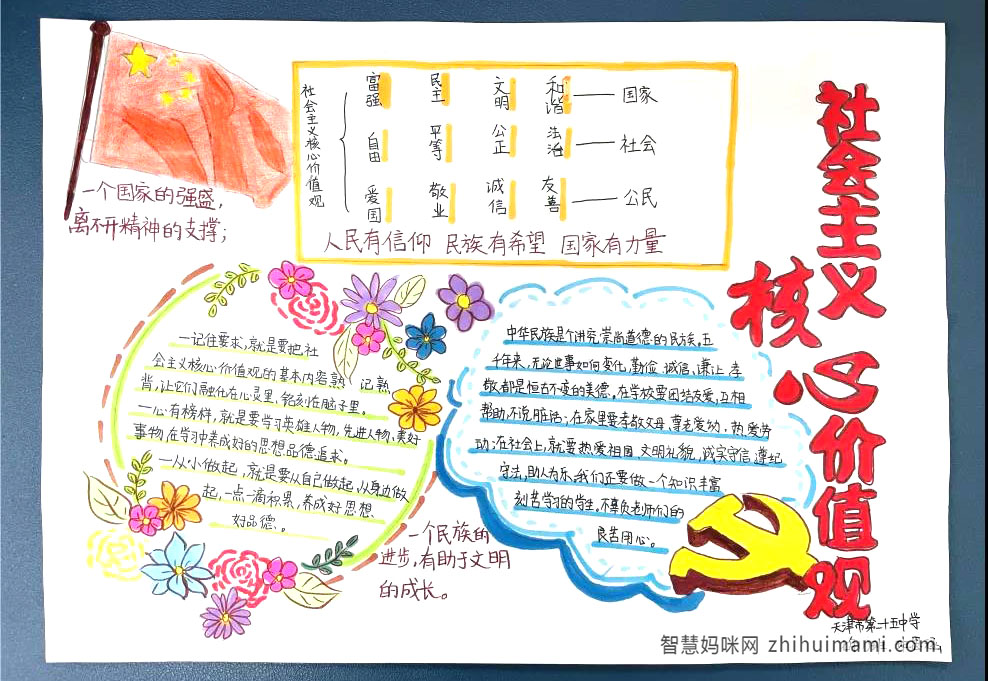 社会主义核心价值观
一个国家的强盛,
离不开精神的支撑;
社会主义核心价值观
富强 民主 文明 和谐 — 国家
自由 平等 公正 法治 — 社会
爱国 敬业 诚信 友善 — 公民
人民有信仰 民族有希望 国家有力量
一记住要求,就是要把社
会主义核心价值观的基本内容熟 记熟
背,让它们融化在心灵里,铭刻在脑子里。
一心有榜样,就是要学习英雄人物,先进人物,美好
事物,在学习中养成好的思想品德追求。
一从小做起,就是要从自己做起,从身边做
起,一点一滴积累,养成好思想、
好品德、。
一个民族的
进步,有助于文明
的成长。
中华民族是个讲究崇尚道德的民族,五
千年来,无论世事如何变化,勤俭、诚信、谦让、孝
敬都是恒古不变的美德。在学校要团结友爱,互相
帮助,不说脏话;在家里要孝敬父母,尊老爱幼,热爱劳
动;在社会上,就要热爱祖国、文明礼貌,诚实守信,遵纪
守法,助人为乐,我们还要做一个知识丰富
刻苦学习的学生。不辜负老师们的
良苦用心。
天津市第二十五中学
智慧妈咪网 zhihuimami.com